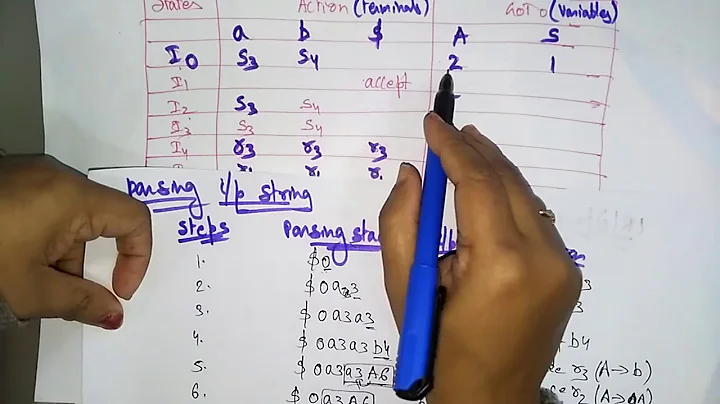 States Action (terminals) GOTO (variables)
a b $ A S
I0 S3 S4 2 1
I1 accept
I2 S3 S4
I3 S3 S4
I4 r3 r3 r3
r1 r1 r1
parsing i/p string
steps parsing
1. $ 0
2. $ 0a3
3. $ 0a3a3
4. $ 0a3a3b4 b4
5. $ 0a3a3A6 r3 (A→b)
6. $ 0a3A6 r2 (A→aA)